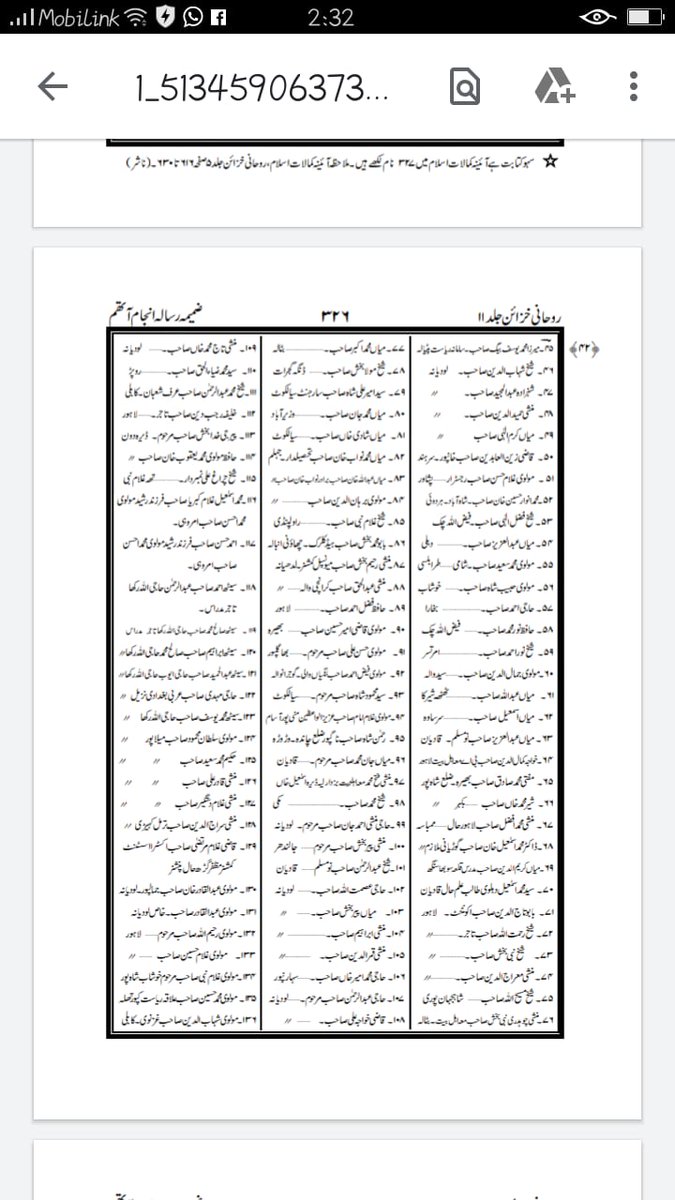 Mobilink 2:32
1_51345906373...
☆ سہو کتابت ہے آئینہ کمالات اسلام میں ۳۲۷ نام لکھے ہیں۔ ملاحظہ آئینہ کمالات اسلام، روحانی خزائن جلد ۵ صفحہ ۶۱۶ تا ۶۳۰۔ (ناشر)
روحانی خزائن جلد ۱۱ ۳۲۶ ضمیمہ رسالہ انجام آتھم
﴿۴۲﴾
۴۵۔ میرزا محمد یوسف بیگ صاحب۔ سامانہ ریاست پٹیالہ
۴۶۔ شیخ شہاب الدین صاحب۔ لودیانہ
۴۷۔ شہزادہ عبدالمجید صاحب۔ 〃
۴۸۔ منشی حمید الدین صاحب۔ 〃
۴۹۔ میاں کرم الٰہی صاحب 〃
۵۰۔ قاضی زین العابدین صاحب خانپور۔ سرہند
۵۱۔ مولوی غلام حسن صاحب رجسٹرار۔ پشاور
۵۲۔ محمد انوار حسین خان صاحب۔ شاہ آباد۔ ہردوئی
۵۳۔ شیخ فضل الٰہی صاحب۔ فیض اللہ چک
۵۴۔ میاں عبدالعزیز صاحب۔ دہلی
۵۵۔ مولوی محمد سعید صاحب۔ شامی طرابلسی
۵۶۔ مولوی حبیب شاہ صاحب۔ خوشاب
۵۷۔ حاجی احمد صاحب۔ بخارا
۵۸۔ حافظ نور محمد صاحب۔ فیض اللہ چک
۵۹۔ شیخ نور احمد صاحب۔ امرتسر
۶۰۔ مولوی جمال الدین صاحب۔ سیدوالہ
۶۱۔ میاں عبداللہ صاحب۔ ٹھٹھہ شیرکا
۶۲۔ میاں اسمعیل صاحب۔ سرساوہ
۶۳۔ میاں عبدالعزیز صاحب نومسلم۔ قادیان
۶۴۔ خواجہ کمال الدین صاحب بی اے معہ اہل بیت لاہور
۶۵۔ مفتی محمد صادق صاحب بھیرہ۔ ضلع شاہ پور
۶۶۔ شیر محمد خاں صاحب۔ بکہر 〃
۶۷۔ منشی محمد افضل صاحب لاہور حال ممباسہ
۶۸۔ ڈاکٹر محمد اسمعیل خان صاحب گوڑیانی ملازم 〃
۶۹۔ میاں کریم الدین صاحب مدرس قلعہ سوبھا سنگھ
۷۰۔ سید محمد اسمعیل دہلوی طالب علم حال قادیان
۷۱۔ بابو تاج الدین صاحب اکونٹنٹ۔ لاہور
۷۲۔ شیخ رحمت اللہ صاحب تاجر۔ 〃
۷۳۔ شیخ نبی بخش صاحب۔ 〃
۷۴۔ منشی معراج الدین صاحب۔ 〃
۷۵۔ شیخ مسیح اللہ صاحب۔ شاہجہان پوری
۷۶۔ منشی چوہدری نبی بخش صاحب معہ اہل بیت۔ بٹالہ
۷۷۔ میاں محمد اکبر صاحب۔ بٹالہ
۷۸۔ شیخ مولا بخش صاحب۔ ڈنگہ گجرات
۷۹۔ سید امیر علی شاہ صاحب سارجنٹ سیالکوٹ
۸۰۔ میاں محمد جان صاحب۔ وزیر آباد
۸۱۔ میاں شادی خاں صاحب۔ سیالکوٹ
۸۲۔ میاں محمد نواب خان صاحب تحصیلدار۔ جہلم
۸۳۔ میاں عبداللہ خان صاحب برادر نواب خان صاحب 〃
۸۴۔ مولوی برہان الدین صاحب۔ 〃
۸۵۔ شیخ غلام نبی صاحب۔ راولپنڈی
۸۶۔ بابو محمد بخش صاحب ہیڈ کلرک۔ چھاؤنی انبالہ
۸۷۔ منشی رحیم بخش صاحب میونسپل کمشنر۔ لدھیانہ
۸۸۔ منشی عبدالحق صاحب کرانچی والہ۔ 〃
۸۹۔ حافظ فضل احمد صاحب۔ لاہور
۹۰۔ مولوی قاضی امیر حسین صاحب۔ بھیرہ
۹۱۔ مولوی حسن علی صاحب مرحوم۔ بھاگلپور
۹۲۔ مولوی فیض احمد صاحب لنگیاں والی۔ گوجرانوالہ
۹۳۔ سید محمود شاہ صاحب مرحوم۔ سیالکوٹ
۹۴۔ مولوی غلام امام صاحب عزیز الواعظین منی پور آسام
۹۵۔ رحمٰن شاہ صاحب ناگپور ضلع چاندہ۔ وڑوڑہ
۹۶۔ میاں جان محمد صاحب مرحوم۔ قادیان
۹۷۔ منشی فتح محمد معہ اہل بیت بزدار لیہ ڈیرہ اسمٰعیل خاں
۹۸۔ شیخ محمد صاحب۔ مکی
۹۹۔ حاجی منشی احمد جان صاحب مرحوم۔ لودیانہ
۱۰۰۔ منشی پیر بخش صاحب مرحوم۔ جالندھر
۱۰۱۔ شیخ عبدالرحمٰن صاحب نومسلم قادیان
۱۰۲۔ حاجی عصمت اللہ صاحب۔ لودیانہ
۱۰۳۔ میاں پیر بخش صاحب۔ 〃
۱۰۴۔ منشی ابراہیم صاحب۔ 〃
۱۰۵۔ منشی قمر الدین صاحب۔ 〃
۱۰۶۔ حاجی محمد امیر خاں صاحب۔ سہارنپور
۱۰۷۔ حاجی عبدالرحمٰن صاحب مرحوم۔ لودیانہ
۱۰۸۔ قاضی خواجہ علی صاحب۔ 〃
۱۰۹۔ منشی تاج محمد خاں صاحب۔ لودیانہ
۱۱۰۔ سید محمد ضیاء الحق صاحب۔ روپڑ
۱۱۱۔ شیخ محمد عبدالرحمٰن صاحب عرف شعبان۔ کابلی
۱۱۲۔ خلیفہ رجب دین صاحب تاجر۔ لاہور
۱۱۳۔ پیر جی خدا بخش صاحب مرحوم۔ ڈیرہ دون
۱۱۴۔ حافظ مولوی محمد یعقوب خان صاحب 〃
۱۱۵۔ شیخ چراغ علی نمبردار۔ تھہ غلام نبی
۱۱۶۔ محمد اسمٰعیل غلام کبریا صاحب فرزند رشید مولوی
محمد احسن صاحب امروہی۔
۱۱۷۔ احمد حسن صاحب فرزند رشید مولوی محمد احسن
صاحب امروہی۔
۱۱۸۔ سیٹھ احمد صاحب عبدالرحمٰن حاجی اللہ رکھا
تاجر مدراس۔
۱۱۹۔ سیٹھ صالح محمد صاحب حاجی اللہ رکھا تاجر مدراس
۱۲۰۔ سیٹھ ابراہیم صاحب صالح محمد حاجی اللہ رکھا 〃
۱۲۱۔ سیٹھ عبدالحمید صاحب حاجی ایوب حاجی اللہ رکھا 〃
۱۲۲۔ حاجی مہدی صاحب عربی بغدادی نزیل 〃
۱۲۳۔ سیٹھ محمد یوسف صاحب حاجی اللہ رکھا 〃
۱۲۴۔ مولوی سلطان محمود صاحب میلاپور 〃
۱۲۵۔ حکیم محمد سعید صاحب 〃 〃
۱۲۶۔ منشی قادر علی صاحب 〃 〃
۱۲۷۔ منشی غلام دستگیر صاحب 〃 〃
۱۲۸۔ منشی سراج الدین صاحب ترمل کہیڑی 〃
۱۲۹۔ قاضی غلام مرتضیٰ صاحب اکسٹرا اسسٹنٹ
کمشنر مظفر گڑھ حال پنشنر
۱۳۰۔ مولوی عبدالقادر خان صاحب جمالپور۔ لودیانہ
۱۳۱۔ مولوی عبدالقادر صاحب۔ خاص لودیانہ
۱۳۲۔ مولوی رحیم اللہ صاحب مرحوم۔ لاہور
۱۳۳۔ مولوی غلام حسین صاحب۔ 〃
۱۳۴۔ مولوی غلام نبی صاحب مرحوم خوشاب شاہ پور
۱۳۵۔ مولوی محمد حسین صاحب علاقہ ریاست کپورتھلہ
۱۳۶۔ مولوی شہاب الدین صاحب غزنوی۔ کابلی